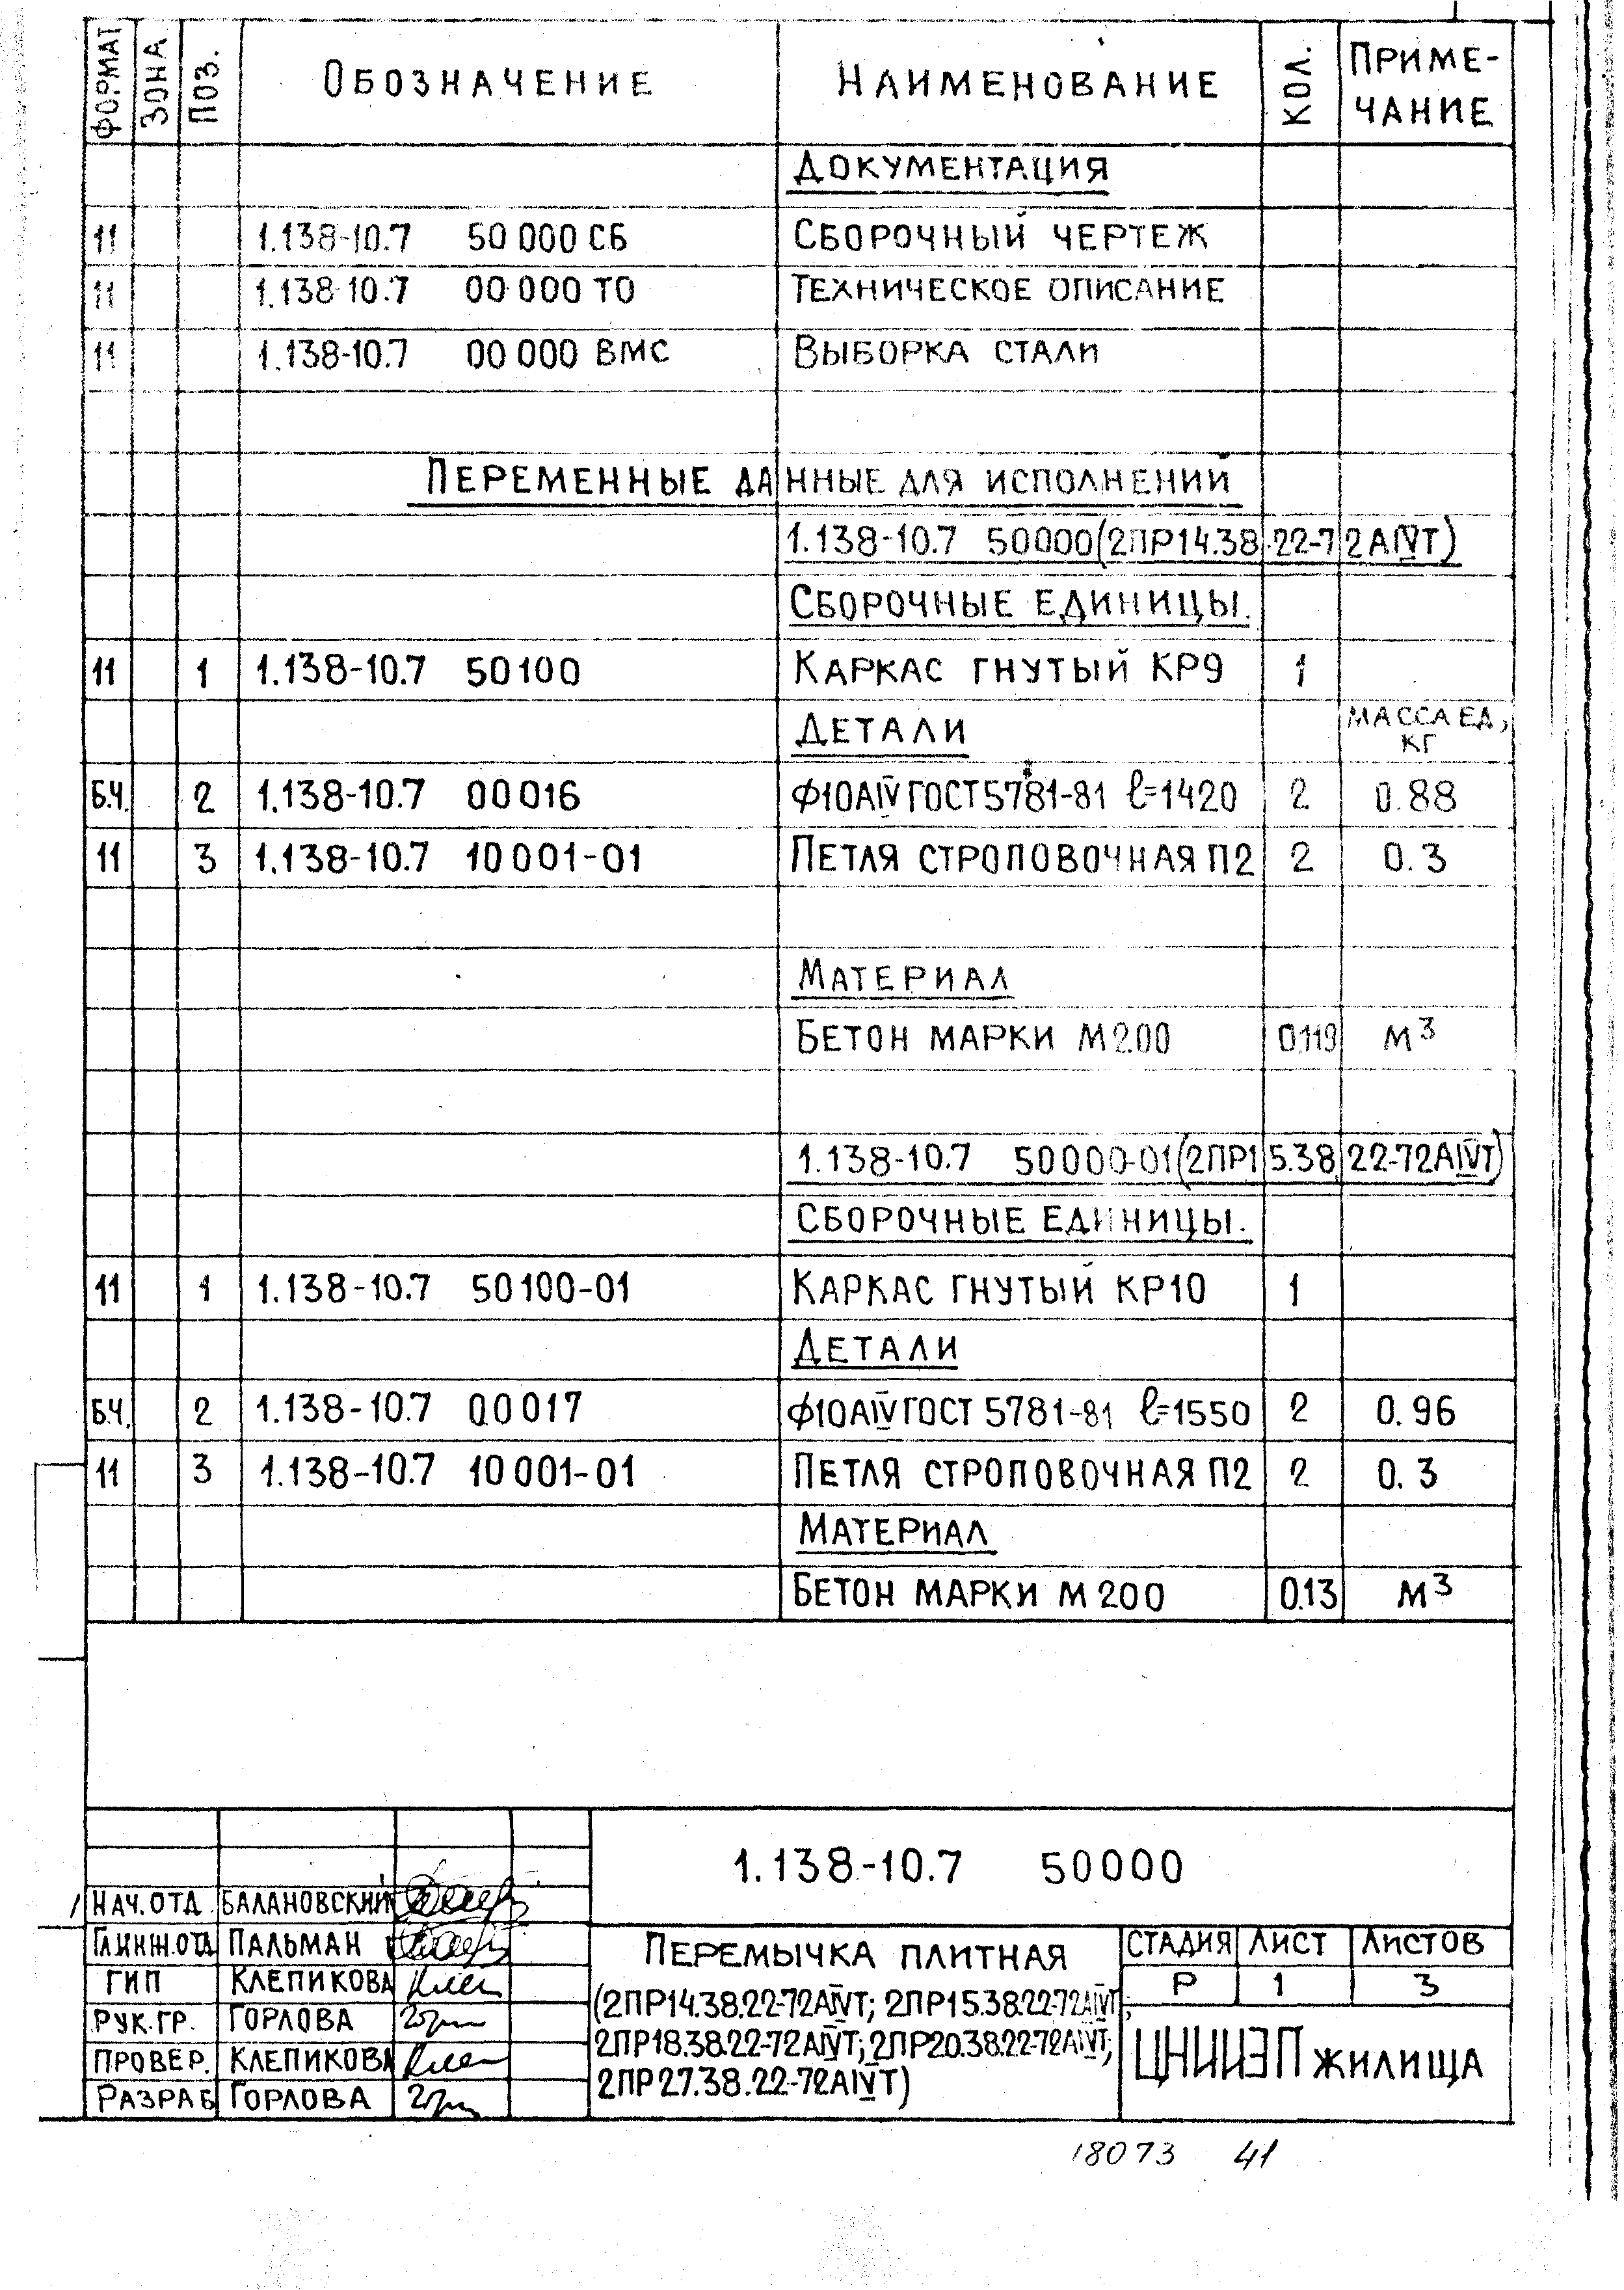 ФОРМАТ ЗОНА ПОЗ. ОБОЗНАЧЕНИЕ НАИМЕНОВАНИЕ КОЛ. ПРИМЕ-
ЧАНИЕ
ДОКУМЕНТАЦИЯ
11 1.138-10.7 50 000 СБ СБОРОЧНЫЙ ЧЕРТЕЖ
11 1.138-10.7 00 000 ТО ТЕХНИЧЕСКОЕ ОПИСАНИЕ
11 1.138-10.7 00 000 ВМС ВЫБОРКА СТАЛИ
ПЕРЕМЕННЫЕ ДАННЫЕ ДЛЯ ИСПОЛНЕНИЙ
1.138-10.7 50000 (2ПР14.38.22-72АIVТ)
СБОРОЧНЫЕ ЕДИНИЦЫ.
11 1 1.138-10.7 50100 КАРКАС ГНУТЫЙ КР9 1
ДЕТАЛИ МАССА ЕД,
КГ
Б.Ч. 2 1.138-10.7 00016 Ф10АIV ГОСТ 5781-81 ℓ=1420 2 0.88
11 3 1.138-10.7 10 001-01 ПЕТЛЯ СТРОПОВОЧНАЯ П2 2 0.3
МАТЕРИАЛ
БЕТОН МАРКИ М200 0.119 М³
1.138-10.7 50000-01 (2ПР15.38.22-72АIVТ)
СБОРОЧНЫЕ ЕДИНИЦЫ.
11 1 1.138-10.7 50100-01 КАРКАС ГНУТЫЙ КР10 1
ДЕТАЛИ
Б.Ч. 2 1.138-10.7 00017 Ф10АIV ГОСТ 5781-81 ℓ=1550 2 0.96
11 3 1.138-10.7 10 001-01 ПЕТЛЯ СТРОПОВОЧНАЯ П2 2 0.3
МАТЕРИАЛ
БЕТОН МАРКИ М200 0.13 М³
1.138-10.7 50000
НАЧ.ОТД. БАЛАНОВСКИЙ
ГЛ.ИНЖ.ОТД ПАЛЬМАН
ГИП КЛЕПИКОВА
РУК.ГР. ГОРЛОВА
ПРОВЕР. КЛЕПИКОВА
РАЗРАБ ГОРЛОВА
ПЕРЕМЫЧКА ПЛИТНАЯ
(2ПР14.38.22-72АIVТ; 2ПР15.38.22-72АIVТ;
2ПР18.38.22-72АIVТ; 2ПР20.38.22-72АIVТ;
2ПР27.38.22-72АIVТ)
СТАДИЯ ЛИСТ ЛИСТОВ
Р 1 3
ЦНИИЭП ЖИЛИЩА
18073 41